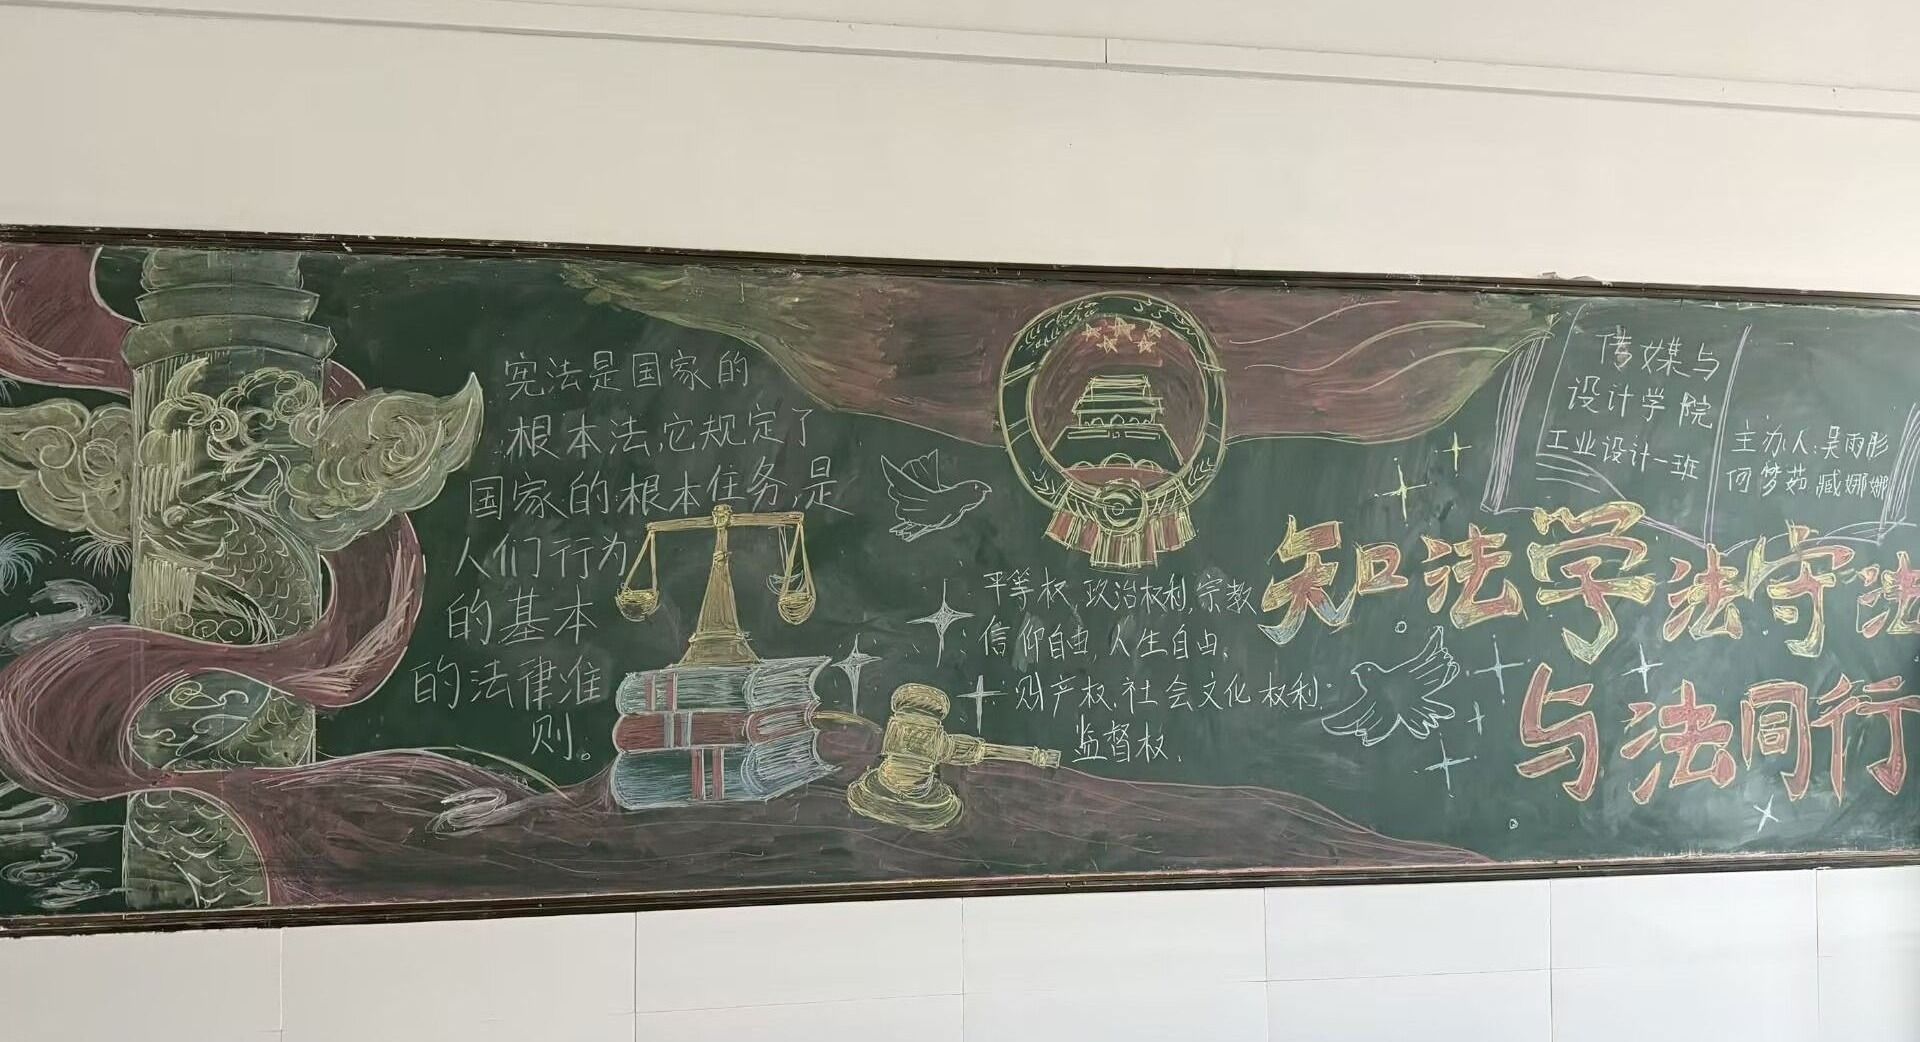 宪法是国家的
根本法,它规定了
国家的根本任务,是
人们行为
的基本
的法律准
则。
平等权,政治权利,宗教
信仰自由,人生自由、
财产权,社会文化权利,
监督权、
传媒与
设计学院
工业设计一班
主办人:吴雨彤
何梦茹 臧娜娜
知法学法守法
与法同行